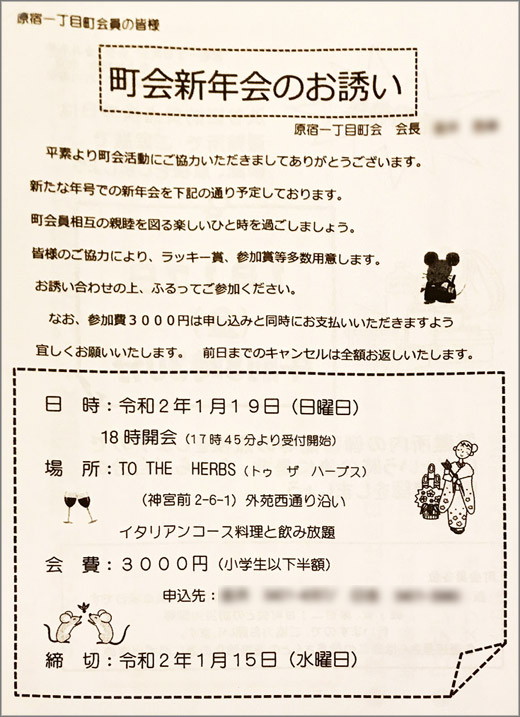 原宿一丁目町会員の皆様
町会新年会のお誘い
原宿一丁目町会　会長
平素より町会活動にご協力いただきましてありがとうございます。
新たな年号での新年会を下記の通り予定しております。
町会員相互の親睦を図る楽しいひと時を過ごしましょう。
皆様のご協力により、ラッキー賞、参加賞等多数用意します。
お誘い合わせの上、ふるってご参加ください。
なお、参加費３０００円は申し込みと同時にお支払いいただきますよう
宜しくお願いいたします。　前日までのキャンセルは全額お返しいたします。
日　時：令和２年１月１９日（日曜日）
18時開会（17時45分より受付開始）
場　所：TO THE HERBS（トゥ　ザ　ハーブス）
（神宮前2-6-1）外苑西通り沿い
イタリアンコース料理と飲み放題
会　費：３０００円（小学生以下半額）
申込先：
締　切：令和２年１月１５日（水曜日）